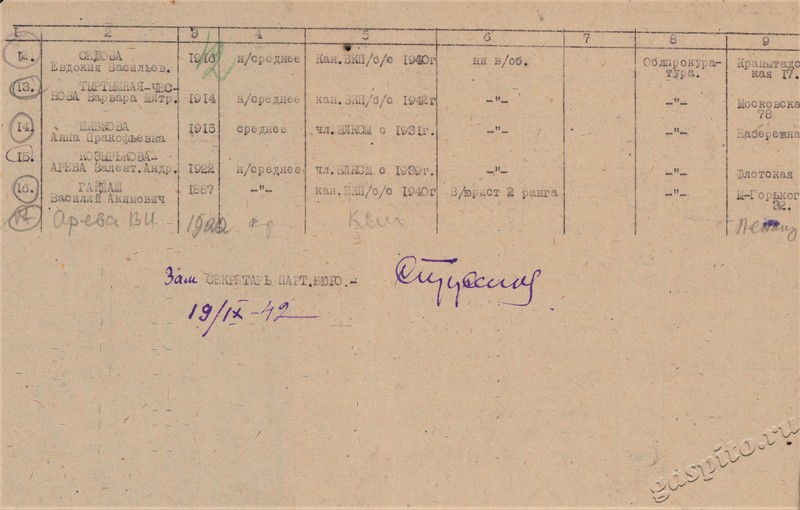 1 2 3 4 5 6 7 8 9
12. СЕДОВА 1916 н/среднее Кан.ВКП/б/с 1940г ни в/об. Облпрокура- Кранштадс
Евдокия Васильев. тура. кая 17.
12
13. ТЫРТЫШНАЯ-ЧЕС-
НОВА Варвара Митр. 1914 н/среднее кан.ВКП/б/с 1942г -"- -"- Московска
78
14. 1915 среднее чл.ВЛКСМ с 1931г. -"- -"- Набережна
Анна Пракофьевна
15. КОЗЫРЬКОВА-
АРЕВА Валент.Андр. 1922 н/среднее чл.ВЛКСМ с 1939г. -"- -"- Флотская
16. ГАЙДАШ 1887 -"- кан.ВКП/б/с 1940г В/юрист 2 ранга -"- М-Горьког
Василий Акимович 32.
Арева В И
Зам СЕКРЕТАРЬ ПАРТ.БЮРО.-
19/IX-42
gaspito.ru